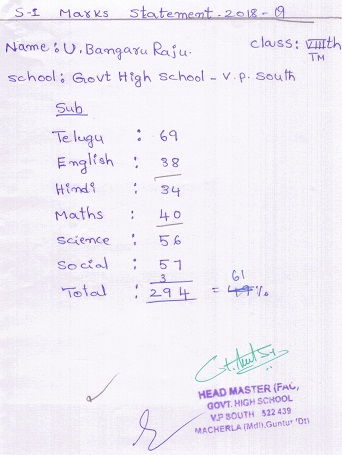 S-1 Marks Statement. 2018-19
Name: U. Bangaru Raju.
class: VIIIth
TM
school: Govt High School - V.p. south
Sub
Telugu : 69
English : 38
Hindi : 34
Maths : 40
Science : 56
Social : 57
3
Total : 294 = 61 %
HEAD MASTER (FAC,
GOVT. HIGH SCHOOL
V.P SOUTH 522 439
MACHERLA (Mdl), Guntur (Dt)